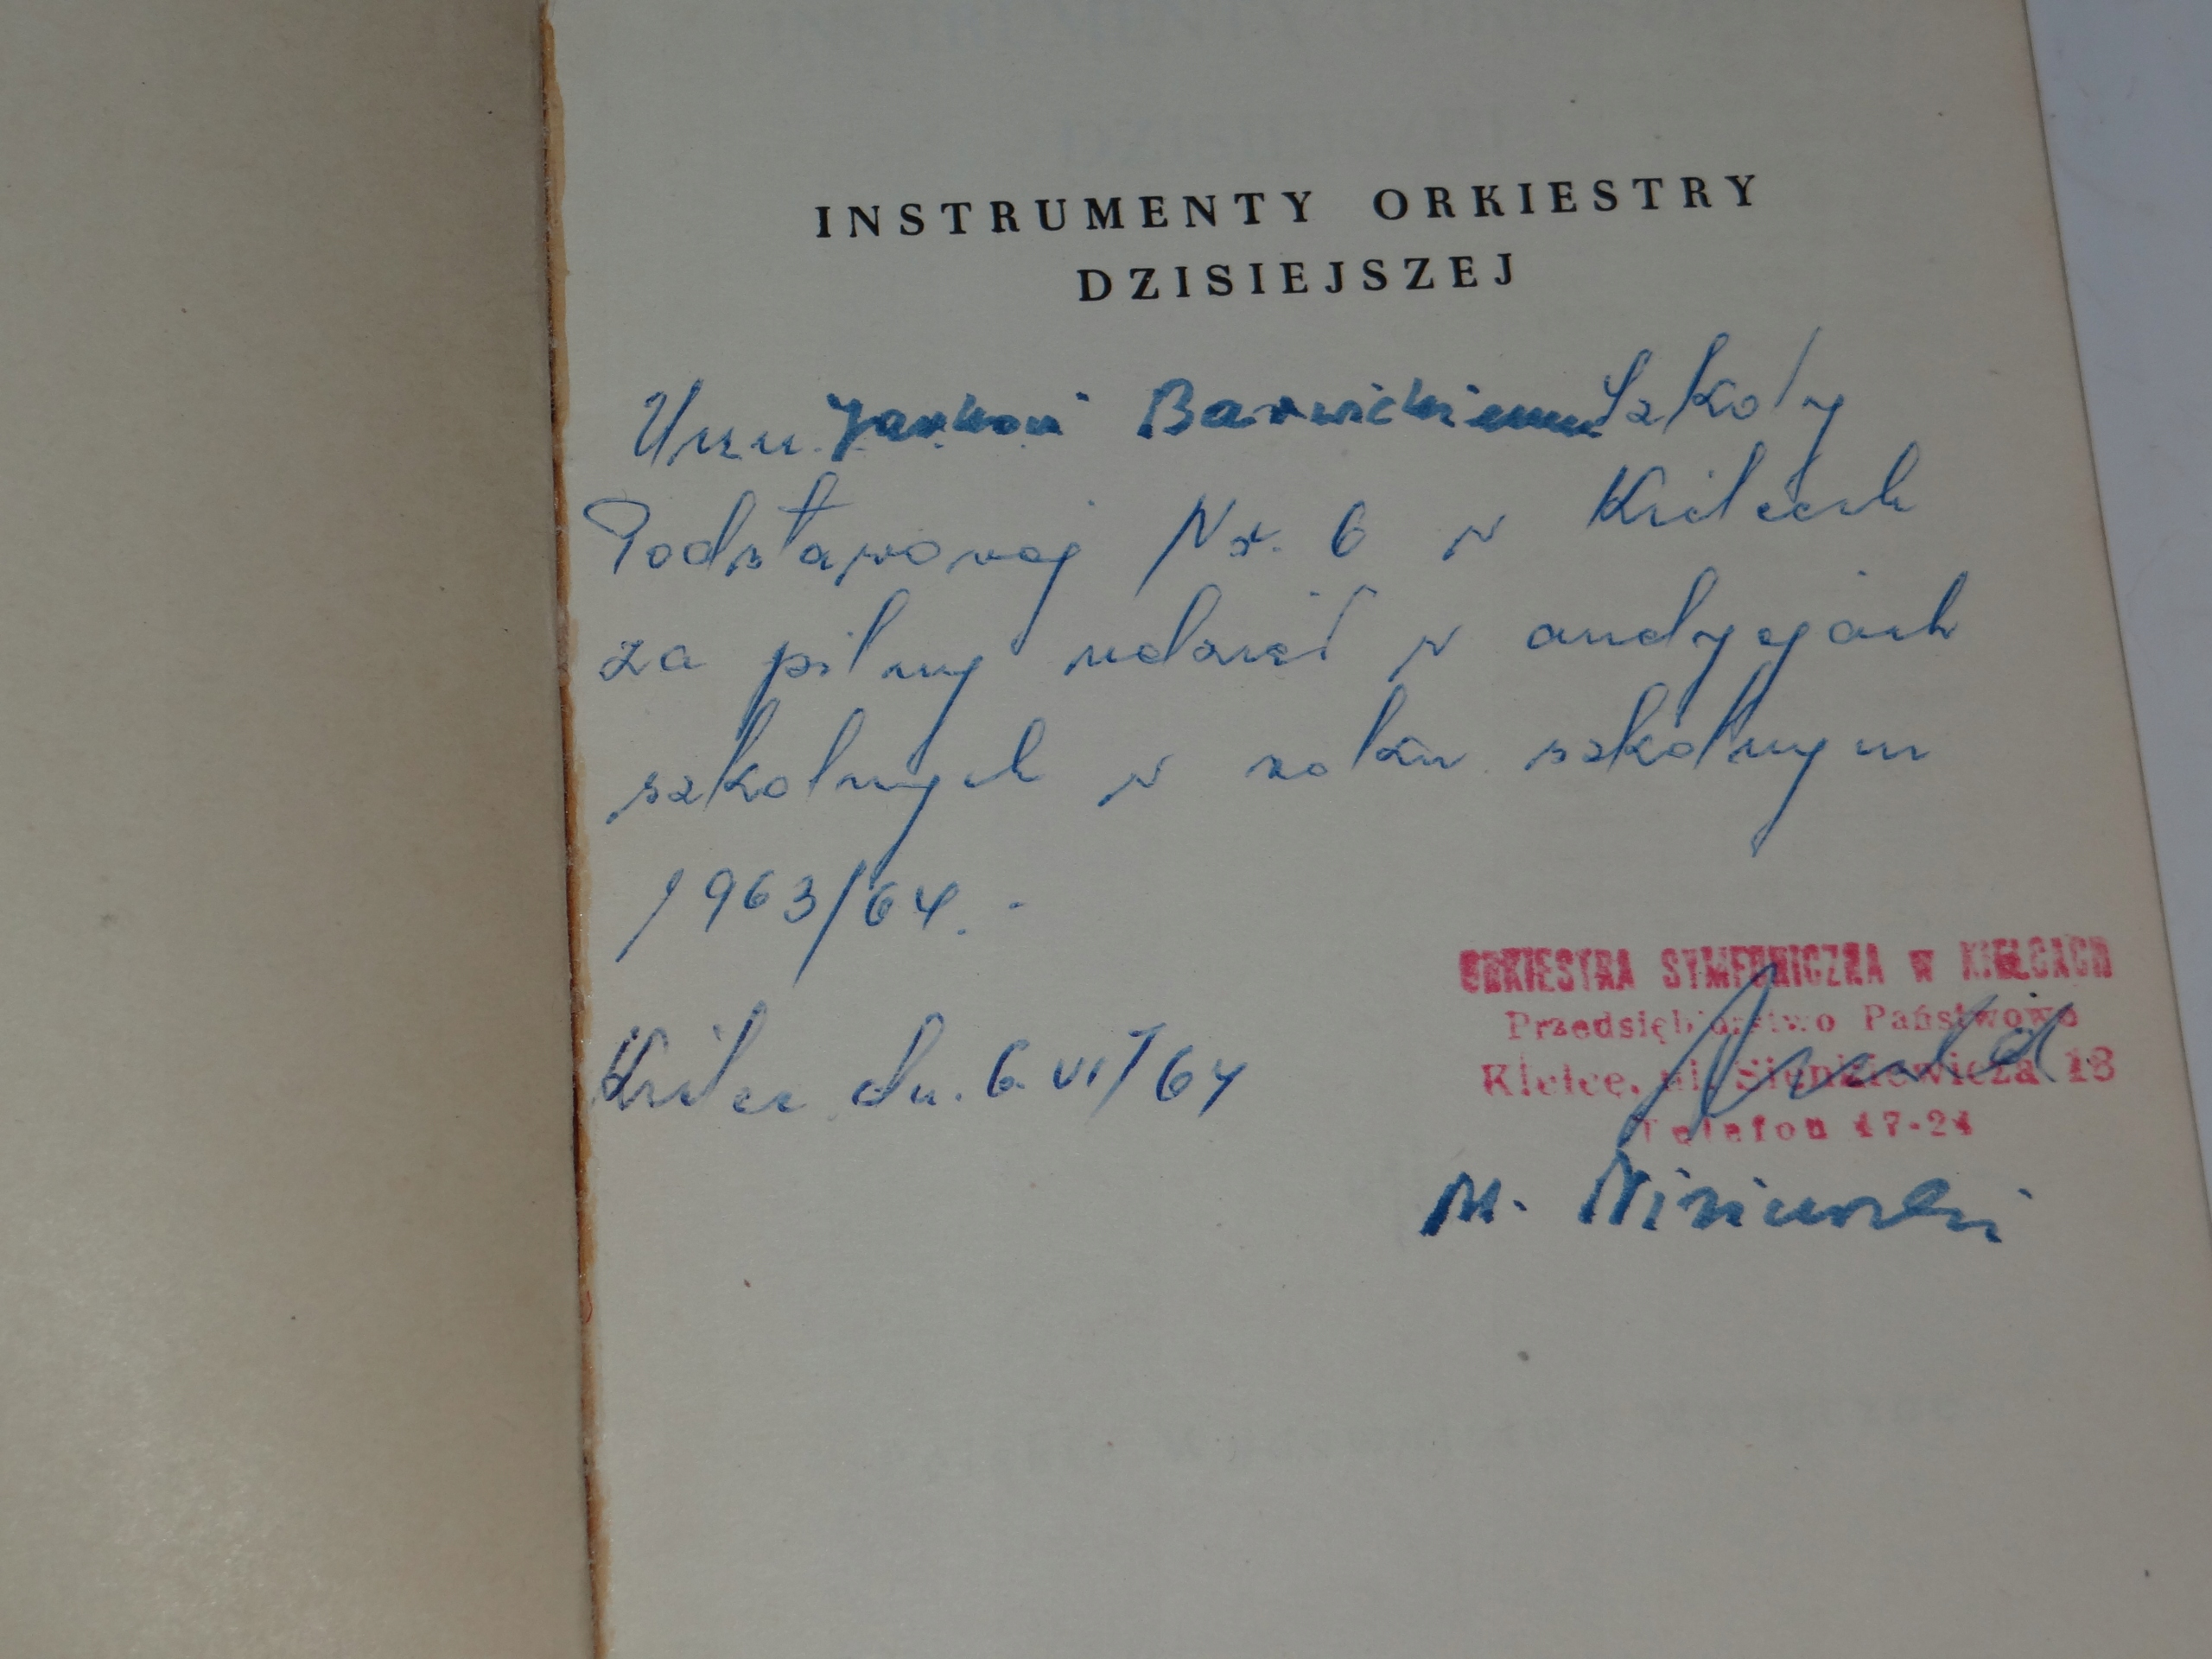 INSTRUMENTY ORKIESTRY
DZISIEJSZEJ
Ucz. Jankowi Barwickiemu Szkoły
Podstawowej Nr. 6 w Kielcach
za pilny udział w audycjach
szkolnych w roku szkolnym
1963/64. -
Kielce dn. 6.VI/64
ORKIESTRA SYMFONICZNA w KIELCACH
Przedsiębiorstwo Państwowe
Kielce, ul. Sienkiewicza 18
Telefon 47-24
M.